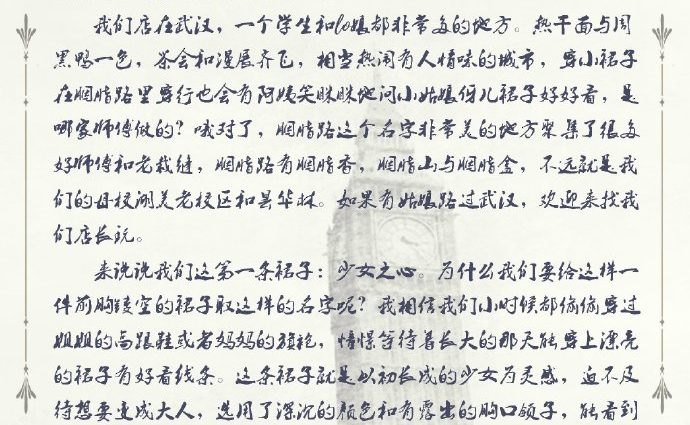 我们店在武汉，一个学生和lo娘都非常多的地方。热干面与周
黑鸭一色，茶会和漫展齐飞，相当热闹有人情味的城市，穿小裙子
在胭脂路里穿行也会有阿姨笑眯眯地问小姑娘伢儿裙子好好看，是
哪家师傅做的？哦对了，胭脂路这个名字非常美的地方聚集了很多
好师傅和老裁缝，胭脂路有胭脂香，胭脂山与胭脂金，不远就是我
们的母校湖美老校区和昙华林。如果有姑娘路过武汉，欢迎来找我
们店长玩。
来说说我们这第一条裙子：少女之心。为什么我们要给这样一
件前胸镂空的裙子取这样的名字呢？我相信我们小时候都偷偷穿过
姐姐的高跟鞋或者妈妈的旗袍，憧憬等待着长大的那天能穿上漂亮
的裙子有好看线条。这条裙子就是以初长成的少女为灵感，迫不及
待想要变成大人，选用了深沉的颜色和有露出的胸口领子，能看到